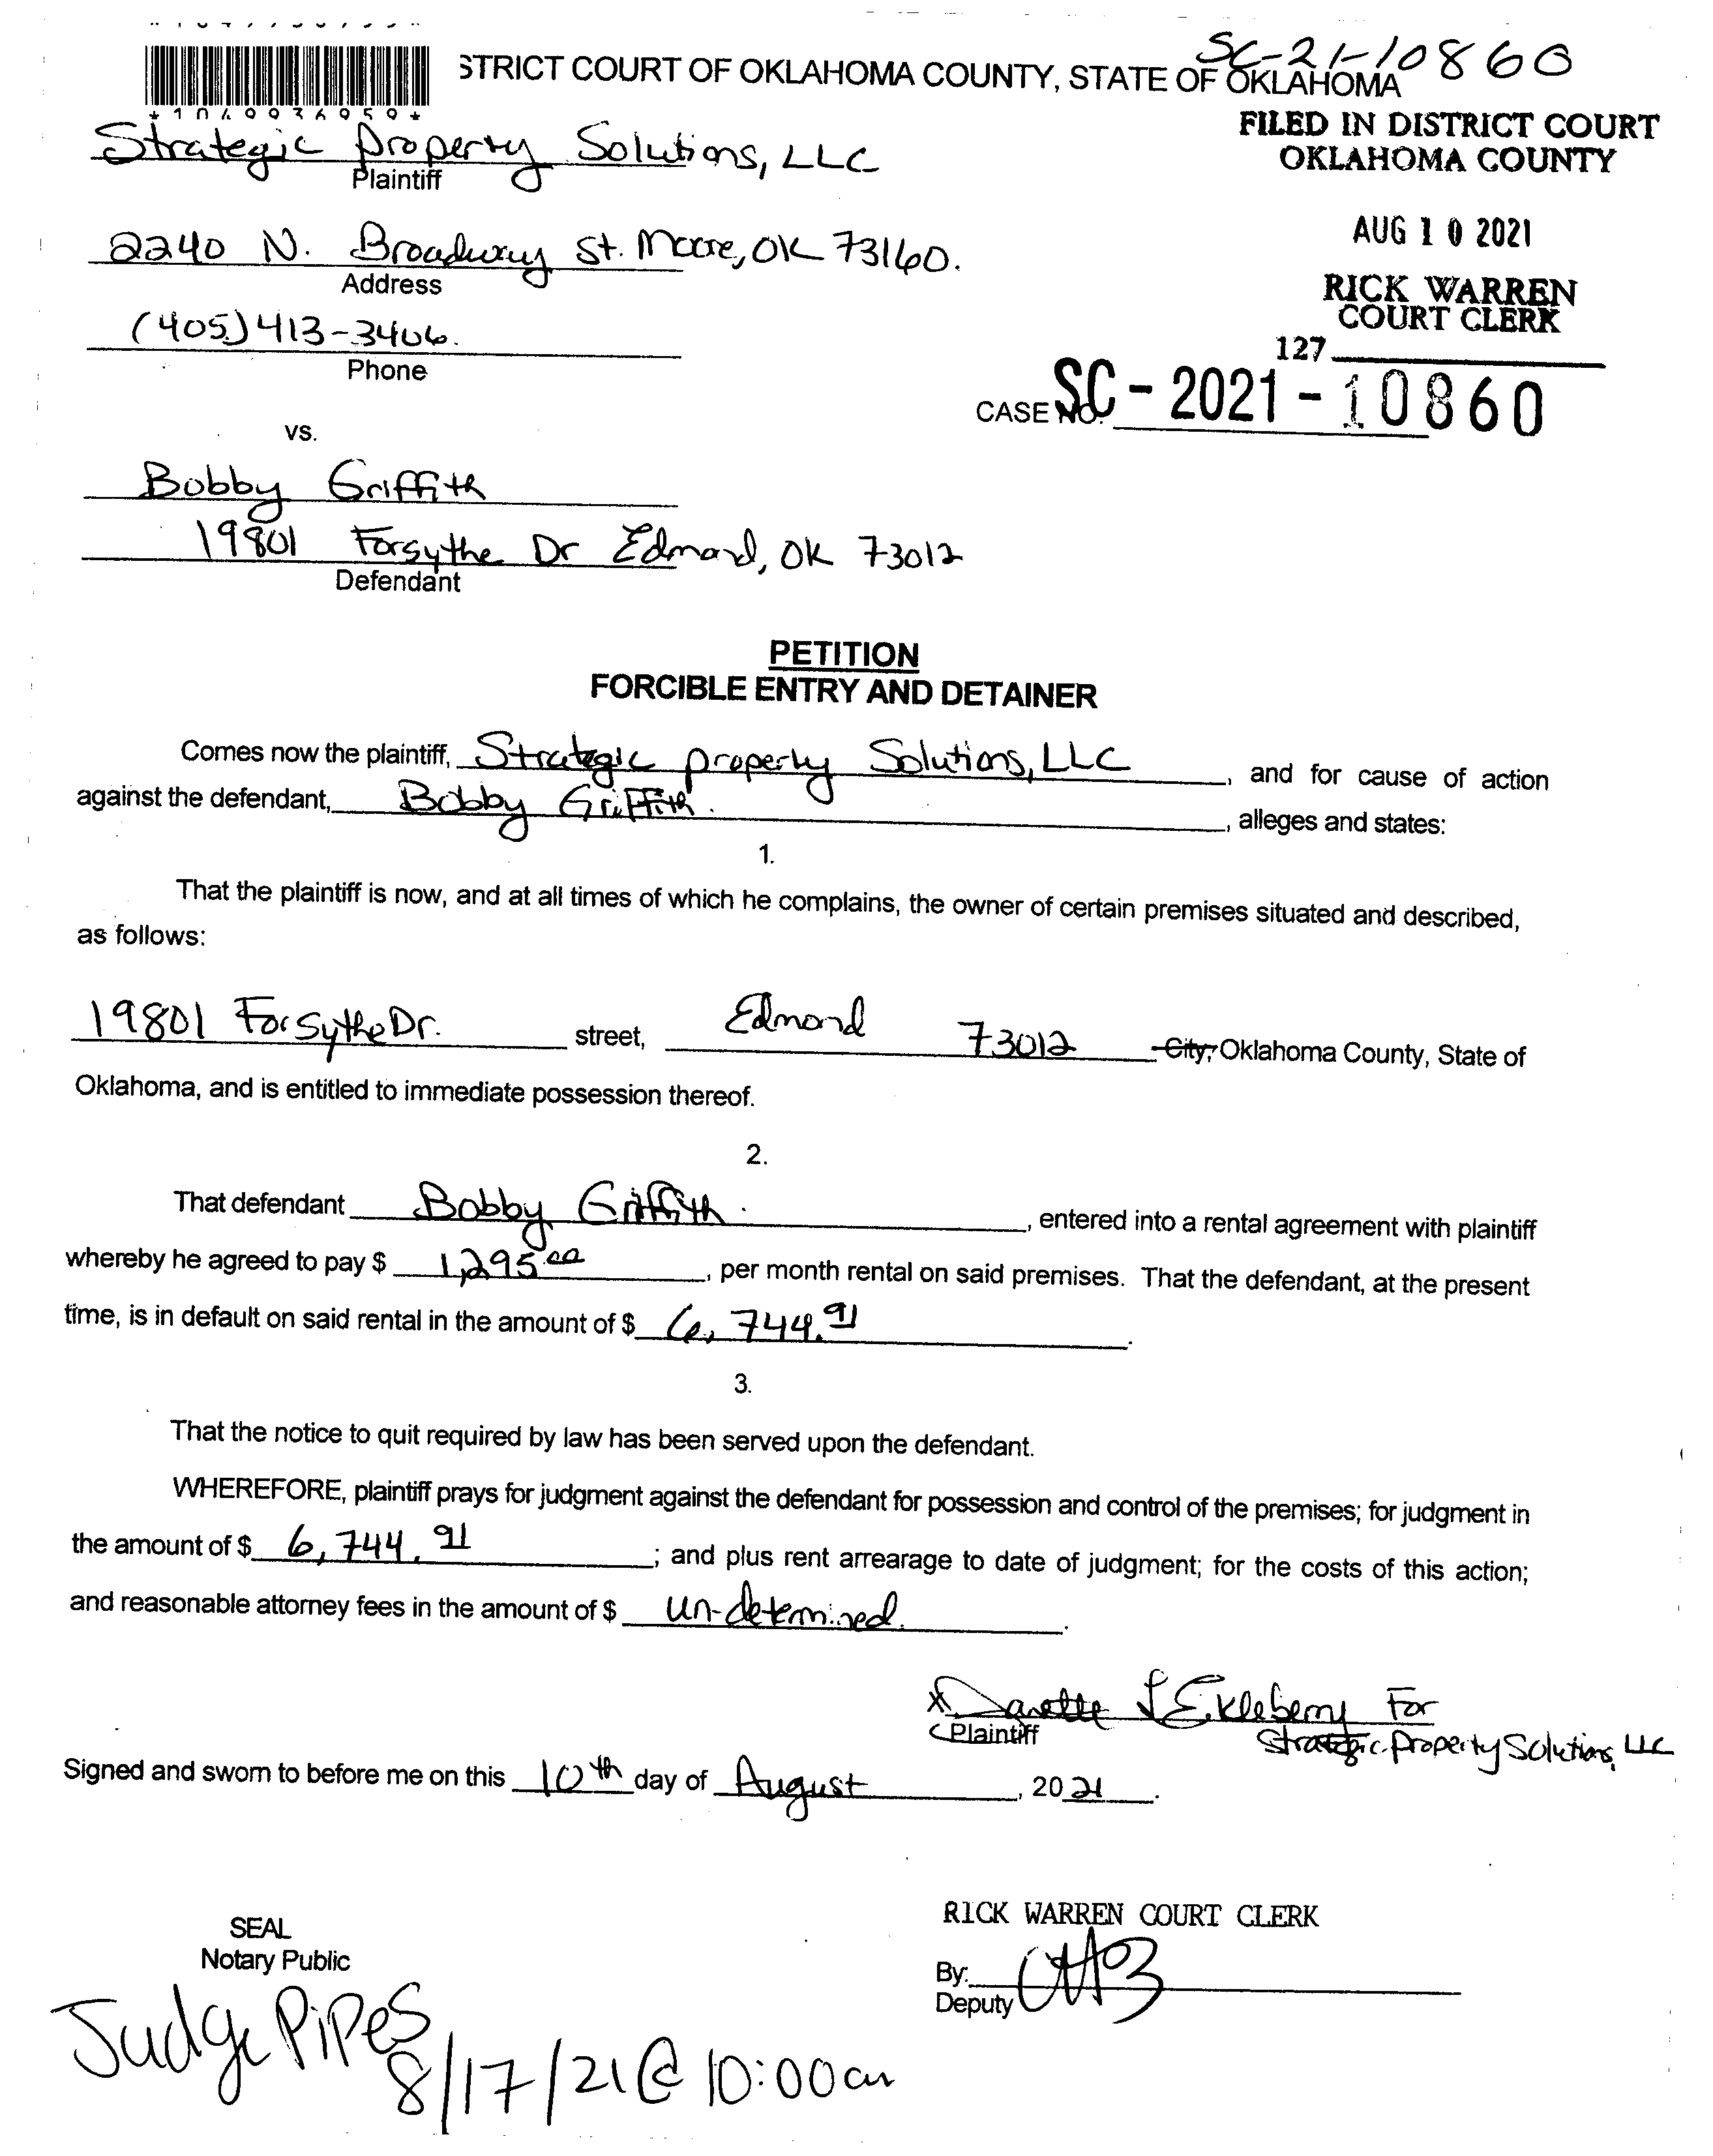 STRICT COURT OF OKLAHOMA COUNTY, STATE OF OKLAHOMA
SC-21-10860
FILED IN DISTRICT COURT
OKLAHOMA COUNTY
Strategic Property Solutions, LLC
Plaintiff
AUG 10 2021
2240 N. Broadway St. Moore, OK 73160.
Address
RICK WARREN
COURT CLERK
(405) 413-3406.
Phone
127
CASE NO. SC-2021-10860
vs.
Bobby Griffith
19801 Forsythe Dr Edmond, OK 73012
Defendant
PETITION
FORCIBLE ENTRY AND DETAINER
Comes now the plaintiff, Strategic property Solutions, LLC, and for cause of action
against the defendant, Bobby Griffith., alleges and states:
1.
That the plaintiff is now, and at all times of which he complains, the owner of certain premises situated and described,
as follows:
19801 Forsythe Dr. street, Edmond 73012 City, Oklahoma County, State of
Oklahoma, and is entitled to immediate possession thereof.
2.
That defendant Bobby Griffith., entered into a rental agreement with plaintiff
whereby he agreed to pay $ 1,295.00, per month rental on said premises. That the defendant, at the present
time, is in default on said rental in the amount of $ 6,744.91.
3.
That the notice to quit required by law has been served upon the defendant.
WHEREFORE, plaintiff prays for judgment against the defendant for possession and control of the premises; for judgment in
the amount of $ 6,744.91; and plus rent arrearage to date of judgment; for the costs of this action;
and reasonable attorney fees in the amount of $ un-determined.
X Danette L Eckleberry For
Plaintiff
Strategic Property Solutions, LLC
Signed and sworn to before me on this 10th day of August, 2021.
RICK WARREN COURT CLERK
SEAL
Notary Public
By:
Deputy
Judge Pipes
8/17/21 @ 10:00am